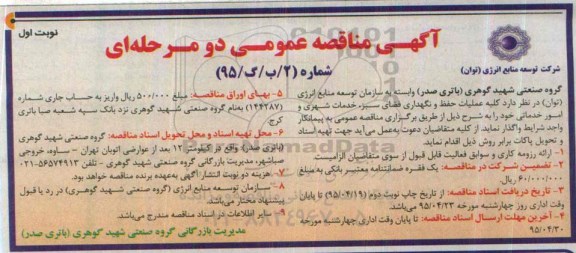 نوبت اول
آگهی مناقصه عمومی دو مرحله‌ای
شماره (۲/ب/گ/۹۵)
شرکت توسعه منابع انرژی (توان)
گروه صنعتی شهید گوهری (باتری صدر) وابسته به سازمان توسعه منابع انرژی
(توان) در نظر دارد کلیه عملیات حفظ و نگهداری فضای سبز، خدمات شهری و
امور خدماتی خود را به شرح ذیل از طریق برگزاری مناقصه عمومی به پیمانکار
واجد شرایط واگذار نماید. از کلیه متقاضیان دعوت به‌عمل می‌آید جهت تهیه اسناد
و تحویل پاکات برابر روش ذیل اقدام نماید.
۱- ارائه رزومه کاری و سوابق فعالیت قابل قبول از سوی متقاضیان الزامیست.
۲- تضمین شرکت در مناقصه: یک فقره ضمانتنامه معتبر بانکی به مبلغ
۶۰/۰۰۰/۰۰۰ ریال
۳- تاریخ دریافت اسناد مناقصه: از تاریخ چاپ نوبت دوم (۹۵/۰۴/۱۹) تا پایان
وقت اداری روز چهارشنبه مورخه ۹۵/۰۴/۲۳ می‌باشد.
۴- آخرین مهلت ارسال اسناد مناقصه: تا پایان وقت اداری چهارشنبه مورخه
۹۵/۰۴/۳۰
۵- بهای اوراق مناقصه: مبلغ ۵۰۰/۰۰۰ ریال واریز به حساب جاری شماره
(۱۴۴۲۸۷) بنام گروه صنعتی شهید گوهری نزد بانک سپه شعبه صبا باتری
کرج.
۶- محل تهیه اسناد و محل تحویل اسناد مناقصه: گروه صنعتی شهید گوهری
(باتری صدر) واقع در کیلومتر ۱۲ بعد از عوارضی اتوبان تهران - ساوه، خروجی
صباشهر، مدیریت بازرگانی گروه صنعتی شهید گوهری - تلفن ۵۶۵۷۴۹۱۳-۰۲۱
۷- هزینه دو نوبت انتشار آگهی به‌عهده برنده مناقصه خواهد بود.
۸- سازمان توسعه منابع انرژی (گروه صنعتی شهید گوهری) در رد یا قبول
پیشنهاد مختار می‌باشد.
۹- سایر اطلاعات در اسناد مناقصه مندرج می‌باشد.
مدیریت بازرگانی گروه صنعتی شهید گوهری (باتری صدر)